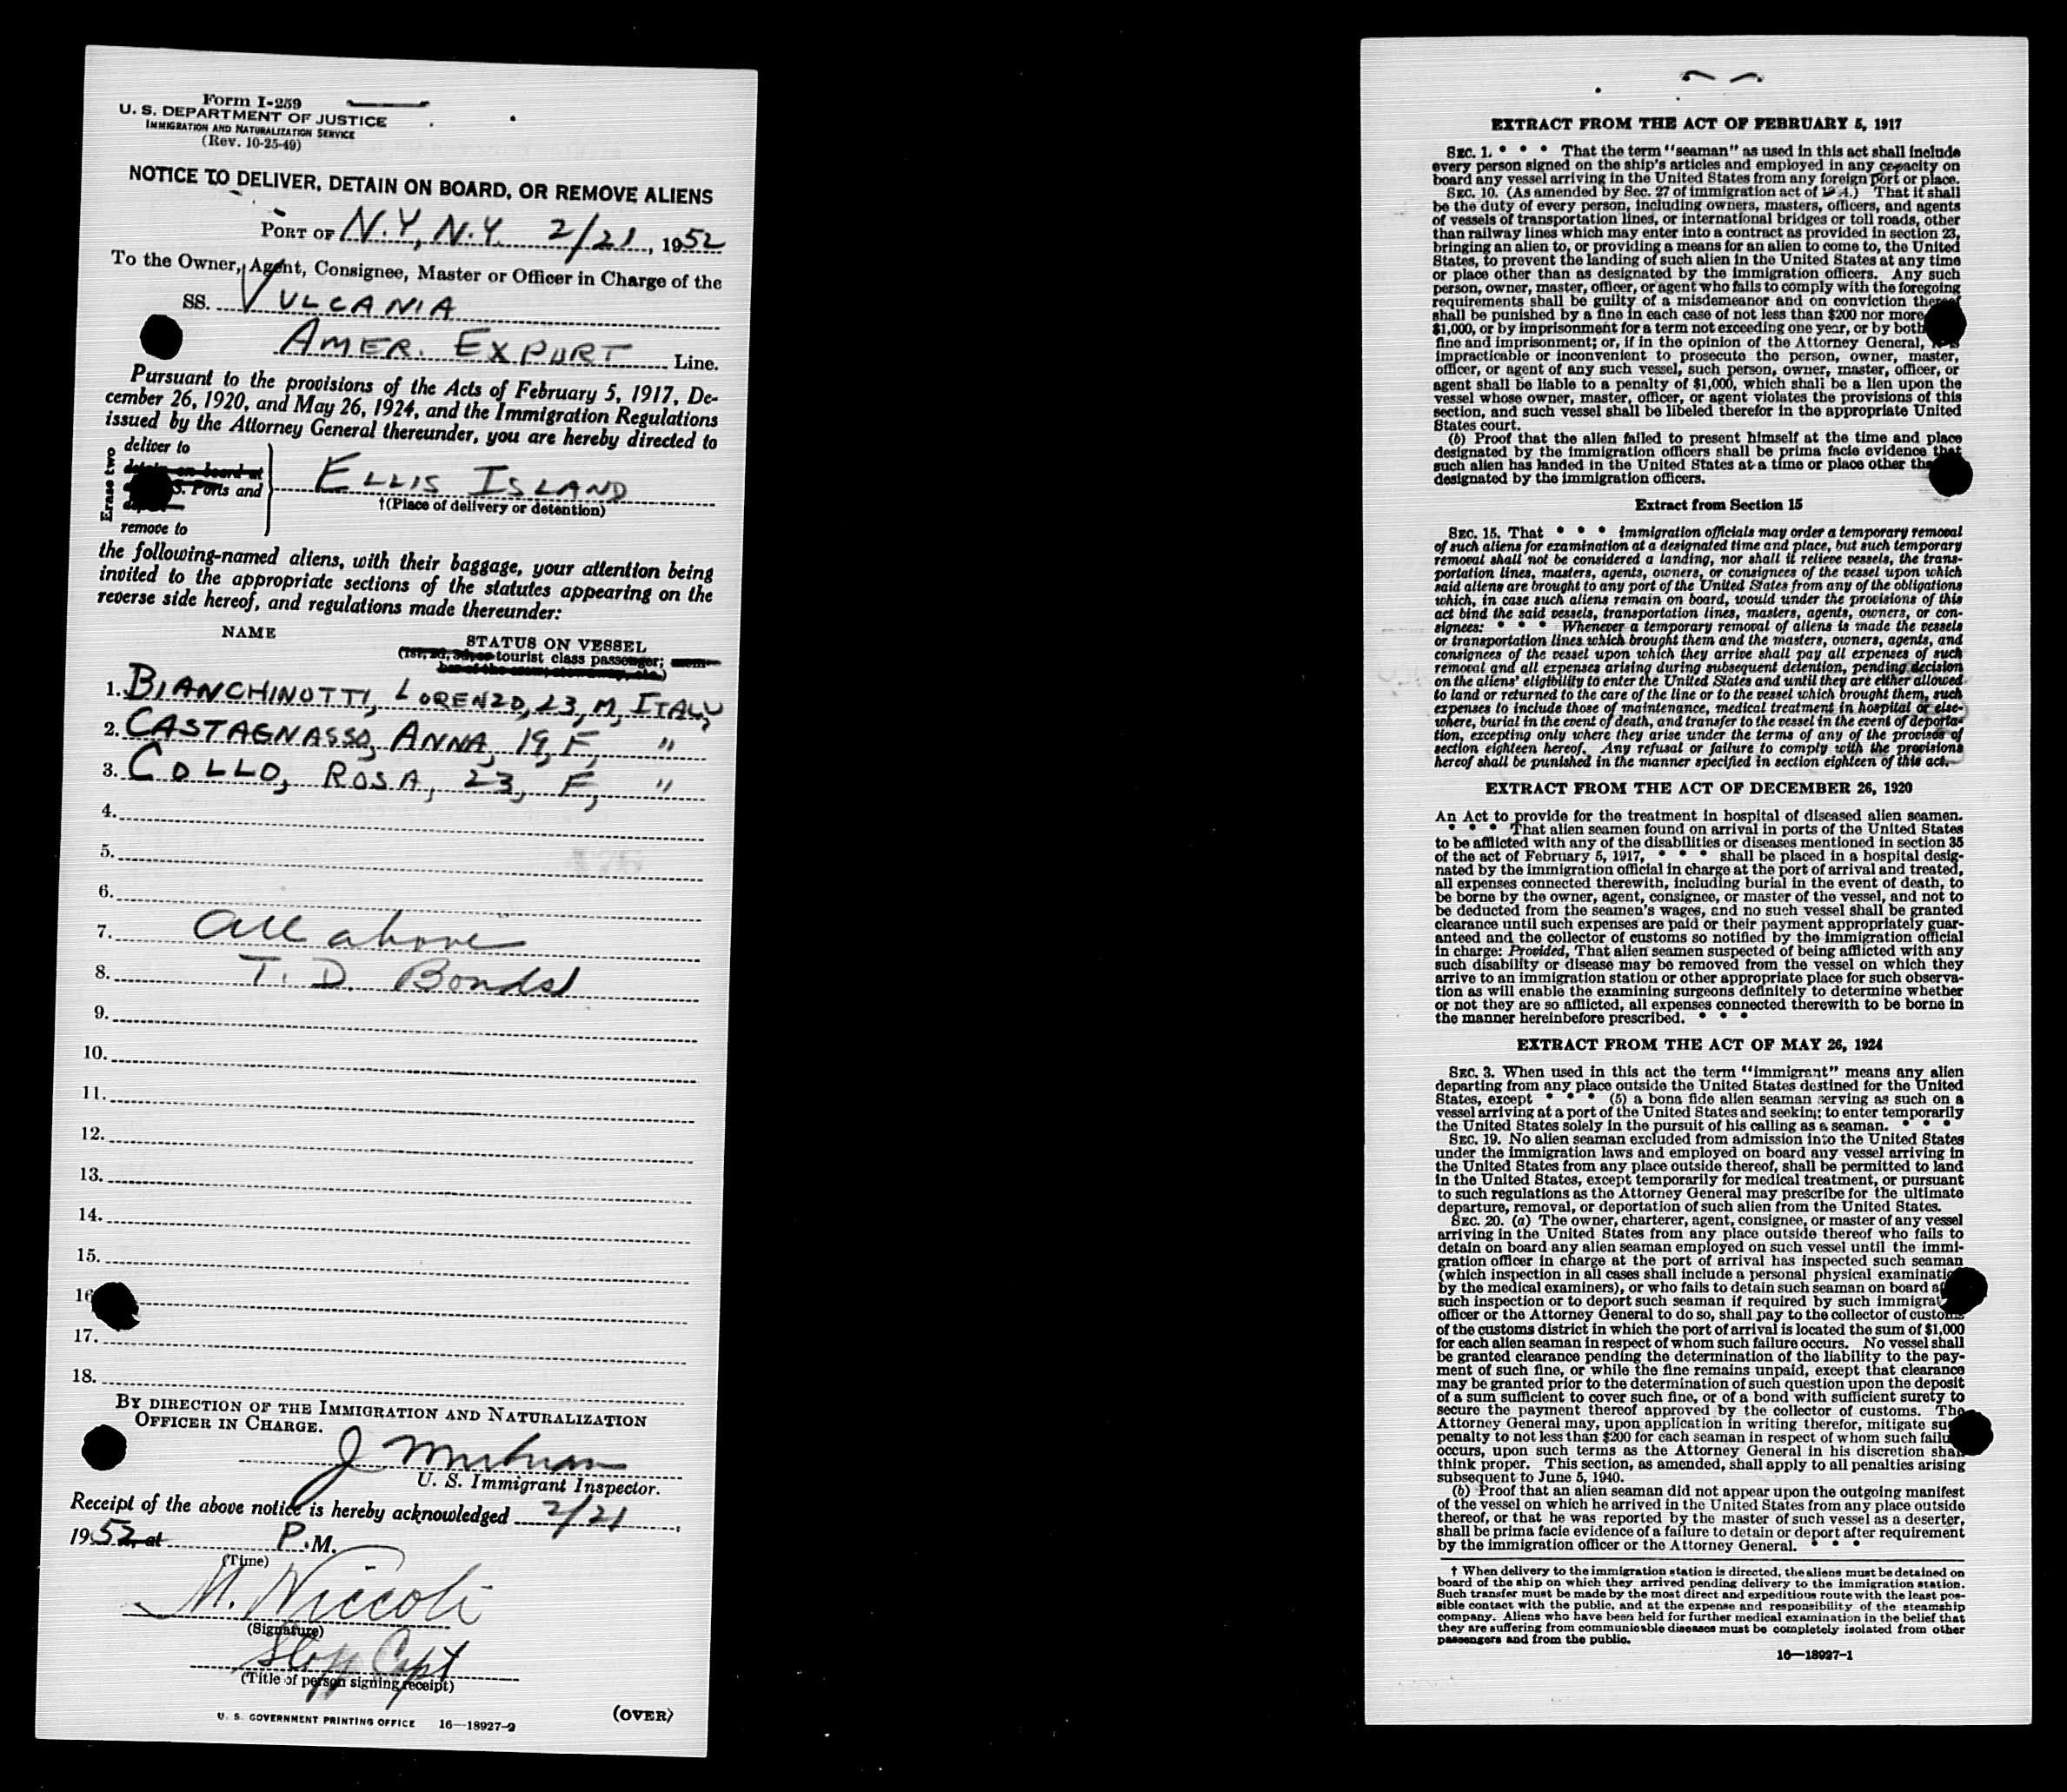 Form I-259
U. S. DEPARTMENT OF JUSTICE
IMMIGRATION AND NATURALIZATION SERVICE
(Rev. 10-25-49)
NOTICE TO DELIVER, DETAIN ON BOARD, OR REMOVE ALIENS
PORT OF N.Y., N.Y. 2/21, 1952
To the Owner, Agent, Consignee, Master or Officer in Charge of the
SS. VULCANIA
AMER. EXPORT Line.
Pursuant to the provisions of the Acts of February 5, 1917, De-
cember 26, 1920, and May 26, 1924, and the Immigration Regulations
issued by the Attorney General thereunder, you are hereby directed to
Erase two
deliver to
detain on board at
S. Ports and
remove to
ELLIS ISLAND
†(Place of delivery or detention)
the following-named aliens, with their baggage, your attention being
invited to the appropriate sections of the statutes appearing on the
reverse side hereof, and regulations made thereunder:
NAME
STATUS ON VESSEL
(1st, 2d, 3d, or tourist class passenger; mem-
ber of the crew, stowaway, etc.)
1. BIANCHINOTTI, LORENZO, 23, M, ITALY
2. CASTAGNASSO, ANNA, 19, F, "
3. COLLO, ROSA, 23, F, "
4.
5.
6.
7. all above
8. T. D. Bonds
9.
10.
11.
12.
13.
14.
15.
16
17.
18.
BY DIRECTION OF THE IMMIGRATION AND NATURALIZATION
OFFICER IN CHARGE.
J
U. S. Immigrant Inspector.
Receipt of the above notice is hereby acknowledged 2/21,
1952, at P.M.
(Time)
M. Niccoli
(Signature)
Capt
(Title of person signing receipt)
U. S. GOVERNMENT PRINTING OFFICE 16—18927-2
(OVER)
EXTRACT FROM THE ACT OF FEBRUARY 5, 1917
SEC. 1. * * * That the term "seaman" as used in this act shall include
every person signed on the ship's articles and employed in any capacity on
board any vessel arriving in the United States from any foreign port or place.
SEC. 10. (As amended by Sec. 27 of immigration act of 4.) That it shall
be the duty of every person, including owners, masters, officers, and agents
of vessels of transportation lines, or international bridges or toll roads, other
than railway lines which may enter into a contract as provided in section 23,
bringing an alien to, or providing a means for an alien to come to, the United
States, to prevent the landing of such alien in the United States at any time
or place other than as designated by the immigration officers. Any such
person, owner, master, officer, or agent who fails to comply with the foregoing
requirements shall be guilty of a misdemeanor and on conviction thereof
shall be punished by a fine in each case of not less than $200 nor more
$1,000, or by imprisonment for a term not exceeding one year, or by both
fine and imprisonment; or, if in the opinion of the Attorney General, it is
impracticable or inconvenient to prosecute the person, owner, master,
officer, or agent of any such vessel, such person, owner, master, officer, or
agent shall be liable to a penalty of $1,000, which shall be a lien upon the
vessel whose owner, master, officer, or agent violates the provisions of this
section, and such vessel shall be libeled therefor in the appropriate United
States court.
(b) Proof that the alien failed to present himself at the time and place
designated by the immigration officers shall be prima facie evidence that
such alien has landed in the United States at a time or place other
designated by the immigration officers.
Extract from Section 15
SEC. 15. That * * * immigration officials may order a temporary removal
of such aliens for examination at a designated time and place, but such temporary
removal shall not be considered a landing, nor shall it relieve vessels, the trans-
portation lines, masters, agents, owners, or consignees of the vessel upon which
said aliens are brought to any port of the United States from any of the obligations
which, in case such aliens remain on board, would under the provisions of this
act bind the said vessels, transportation lines, masters, agents, owners, or con-
signees: * * * Whenever a temporary removal of aliens is made the vessels
or transportation lines which brought them and the masters, owners, agents, and
consignees of the vessel upon which they arrive shall pay all expenses of such
removal and all expenses arising during subsequent detention, pending decision
on the aliens' eligibility to enter the United States and until they are either allowed
to land or returned to the care of the line or to the vessel which brought them, such
expenses to include those of maintenance, medical treatment in hospital or else-
where, burial in the event of death, and transfer to the vessel in the event of deporta-
tion, excepting only where they arise under the terms of any of the provisos of
section eighteen hereof. Any refusal or failure to comply with the provisions
hereof shall be punished in the manner specified in section eighteen of this act.
EXTRACT FROM THE ACT OF DECEMBER 26, 1920
An Act to provide for the treatment in hospital of diseased alien seamen.
* * * That alien seamen found on arrival in ports of the United States
to be afflicted with any of the disabilities or diseases mentioned in section 35
of the act of February 5, 1917, * * * shall be placed in a hospital desig-
nated by the immigration official in charge at the port of arrival and treated,
all expenses connected therewith, including burial in the event of death, to
be borne by the owner, agent, consignee, or master of the vessel, and not to
be deducted from the seamen's wages, and no such vessel shall be granted
clearance until such expenses are paid or their payment appropriately guar-
anteed and the collector of customs so notified by the immigration official
in charge: Provided, That alien seamen suspected of being afflicted with any
such disability or disease may be removed from the vessel on which they
arrive to an immigration station or other appropriate place for such observa-
tion as will enable the examining surgeons definitely to determine whether
or not they are so afflicted, all expenses connected therewith to be borne in
the manner hereinbefore prescribed. * * *
EXTRACT FROM THE ACT OF MAY 26, 1924
SEC. 3. When used in this act the term "immigrant" means any alien
departing from any place outside the United States destined for the United
States, except * * * (5) a bona fide alien seaman serving as such on a
vessel arriving at a port of the United States and seeking to enter temporarily
the United States solely in the pursuit of his calling as a seaman. * * *
SEC. 19. No alien seaman excluded from admission into the United States
under the immigration laws and employed on board any vessel arriving in
the United States from any place outside thereof, shall be permitted to land
in the United States, except temporarily for medical treatment, or pursuant
to such regulations as the Attorney General may prescribe for the ultimate
departure, removal, or deportation of such alien from the United States.
SEC. 20. (a) The owner, charterer, agent, consignee, or master of any vessel
arriving in the United States from any place outside thereof who fails to
detain on board any alien seaman employed on such vessel until the immi-
gration officer in charge at the port of arrival has inspected such seaman
(which inspection in all cases shall include a personal physical examination
by the medical examiners), or who fails to detain such seaman on board
such inspection or to deport such seaman if required by such immigrat
officer or the Attorney General to do so, shall pay to the collector of customs
of the customs district in which the port of arrival is located the sum of $1,000
for each alien seaman in respect of whom such failure occurs. No vessel shall
be granted clearance pending the determination of the liability to the pay-
ment of such fine, or while the fine remains unpaid, except that clearance
may be granted prior to the determination of such question upon the deposit
of a sum sufficient to cover such fine, or of a bond with sufficient surety to
secure the payment thereof approved by the collector of customs. The
Attorney General may, upon application in writing therefor, mitigate such
penalty to not less than $200 for each seaman in respect of whom such failu
occurs, upon such terms as the Attorney General in his discretion shall
think proper. This section, as amended, shall apply to all penalties arising
subsequent to June 5, 1940.
(b) Proof that an alien seaman did not appear upon the outgoing manifest
of the vessel on which he arrived in the United States from any place outside
thereof, or that he was reported by the master of such vessel as a deserter,
shall be prima facie evidence of a failure to detain or deport after requirement
by the immigration officer or the Attorney General. * * *
† When delivery to the immigration station is directed, the aliens must be detained on
board of the ship on which they arrived pending delivery to the immigration station.
Such transfer must be made by the most direct and expeditious route with the least pos-
sible contact with the public, and at the expense and responsibility of the steamship
company. Aliens who have been held for further medical examination in the belief that
they are suffering from communicable diseases must be completely isolated from other
passengers and from the public.
16—18927-1